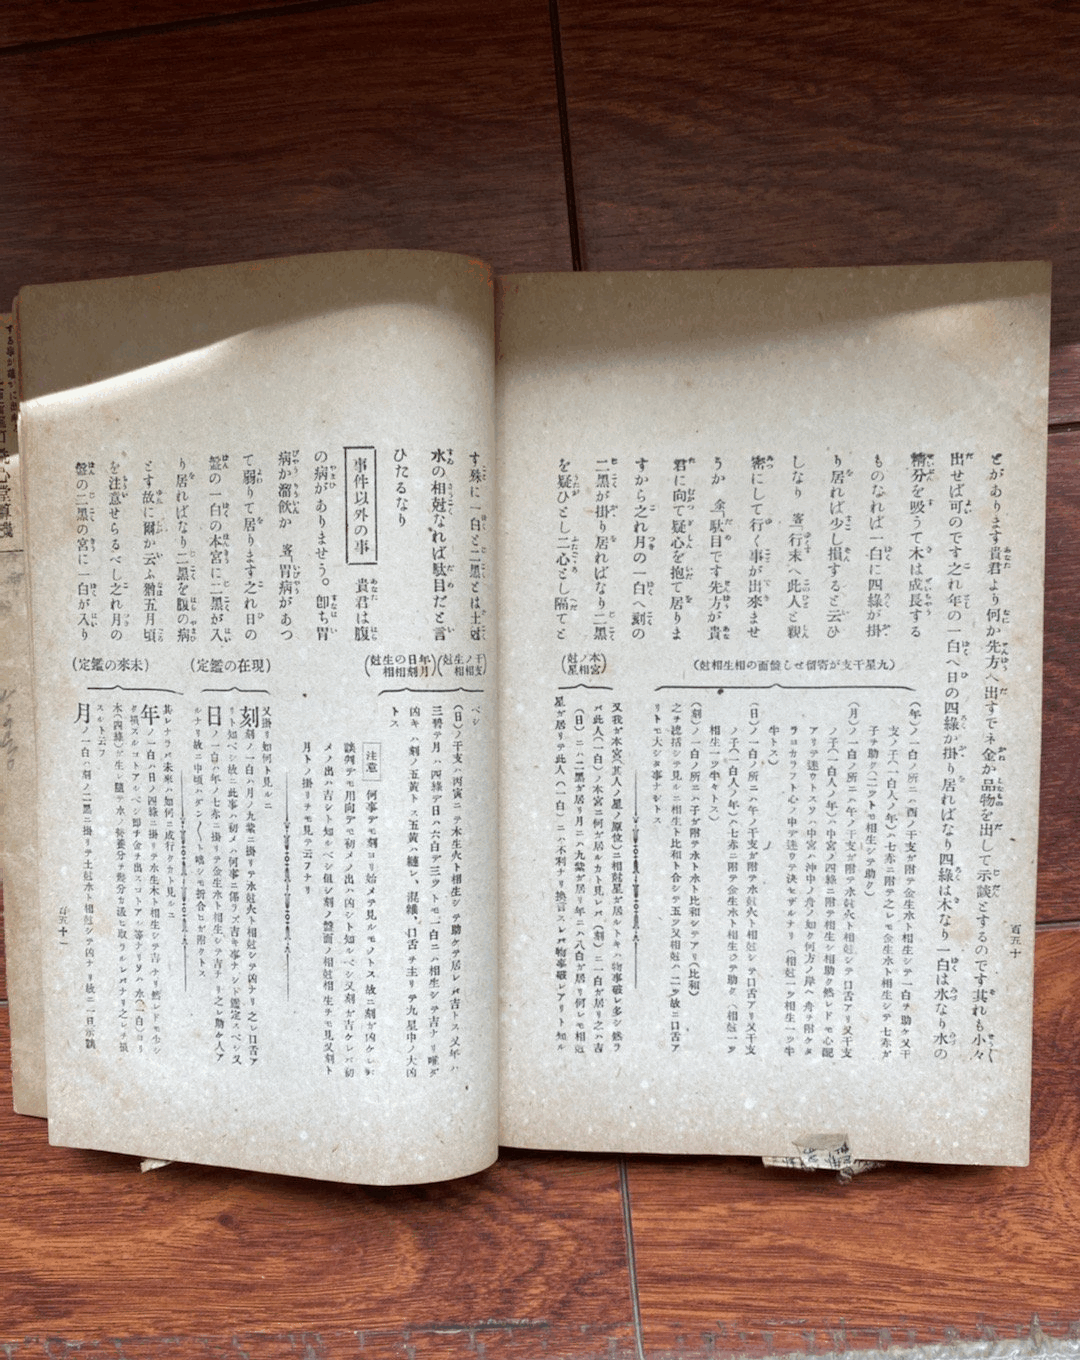 百五十
とがあります貴君より何か先方へ出すでネ金か品物を出して示談とするのです其れも小々
出せば可のです之れ年の一白へ日の四綠が掛り居ればなり四綠は木なり一白は水なり水の
精分を吸うて木は成長する
ものなれば一白に四綠が掛
り居れば少し損すると云ひ
しなり 客「行末へ此人と親
密にして行く事が出來ませ
うか 金「駄目です先方が貴
君に向て疑心を抱て居りま
すから之れ月の一白へ刻の
二黑が掛り居ればなり二黑
を疑ひとし二心とし隔てと
(九星干支が寄留せし盤面の相生相尅)
(年)ノ一白ノ所ニハ酉ノ干支ガ附テ金生水ト相生シテ一白ヲ助ケ又干
支ノ子(一白人ノ年)ハ七赤ニ附テ之レモ金生水ト相生シテ七赤ガ
子ヲ助ク(二ツトモ相生シテ助ク)
(月)ノ一白ノ所ニハ午ノ干支ガ附テ水尅火ト相尅シテ口舌アリ又干支
ノ子(一白人ノ年)ハ中宮ノ四綠ニ附テ相生シ相助ク然レドモ心配
アリテ迷ウトスルハ中宮ハ沖中ノ舟ノ如ク何方ノ岸ヘ舟ヲ附ケタ
ラヨカラフト心ノ中デ迷ウテ決セザルナリ(相尅一ツ相生一ツ半
牛トス)
(日)ノ一白ノ所ニハ午ノ干支ガ附テ水尅火ト相尅シテ口舌アリ又干支
ノ子(一白人ノ年)ハ七赤ニ附テ金生水ト相生シテ助ク(相尅一ツ
相生一ツ半トス)
(刻)ノ一白ノ所ニハ子ガ附テ水ト水ト比和シテアリ(比和)
之ヲ總括シテ見ルニ相生ト比和ト合シテ五ツ又相尅ハ二ツ故ニ口舌ア
リトモ大シタ事ナシトス
(本宮ノ相尅星)
又我ガ本宮(其人ノ星ノ原位)ニ相尅星ガ居ルトキハ物事破レ多シ然ラ
バ此人(一白)ノ本宮ニ何ガ居ルカト見レバ(刻)ニ一白ガ居リ之ハ吉
(日)ニハ二黑ガ居リ月ニハ九紫ガ居リ年ニハ八白ガ居リ何レモ相尅
星ガ居リテ此人(一白)ニハ不利ナリ換言スレバ物事破レアリト知ル
す殊に一白と二黑とは土尅
水の相尅なれば駄目だと言
ひたるなり
事件以外の事
貴君は腹
の病がありませう。卽ち胃
病か溜飮か 客「胃病があつ
て弱りて居ります之れ日の
盤の一白の本宮に二黑が入
り居ればなり二黑を腹の病
とす故に爾か云ふ猶五月頃
を注意せらるべし之れ月の
盤の二黑の宮に一白が入り
(干支ノ相生相尅)
(年月日刻の相生相尅)
ベシ
(日)ノ干支ハ丙寅ニテ木生火ト相生シテ助ケテ居レバ吉トス又年ハ
三碧デ月ハ四綠デ日ハ六白デ三ツトモ一白ニハ相生シテ吉ナリ唯ダ
凶キハ刻ノ五黃トス五黃ハ纏レ、混雜、口舌ヲ主リテ九星中ノ大凶
トス
注意
何事デモ刻ヨリ始メテ見ルモノトス故ニ刻ガ凶ケレバ
談判デモ用向デモ初メノ出ハ凶シト知ルベシ又刻ガ吉ケレバ初
メノ出ハ吉シト知ルベシ但シ刻ノ盤面ノ相尅相生ヲモ見又刻ト
月トノ掛リヲモ見テ云フナリ
(現在の鑑定)
又掛リ如何ト見ルニ
刻刻ノ一白ハ月ノ九紫ニ掛リテ水尅火ト相尅シテ凶ナリ之レ口舌ア
リト知ベシ故ニ此事ハ初メハ何事ニ係ラズ吉キ事ナシト鑑定スベシ又
日ノ一白ハ年ノ七赤ニ掛リテ金生水ト相生シテ吉ナリ之レ助ケ人ア
ルナリ故ニ中頃ハダン〱ト嗚シモ折合ヒガ附クトス
(未來の鑑定)
其レナラバ未來ハ如何ニ成行クカト見ルニ
年ノ一白ハ日ノ四綠ニ掛リテ水生木ト相生シテ吉ナリ然レドモ少シ
ク損スルコトアルベシ卽チ金ヲ出スコトア
水(四綠)が生レ
スルト云フ
月ノ一白ハ刻ノ二黑ニ掛リテ土尅水ト相尅シテ凶ナリ故ニ一旦示談
百五十一